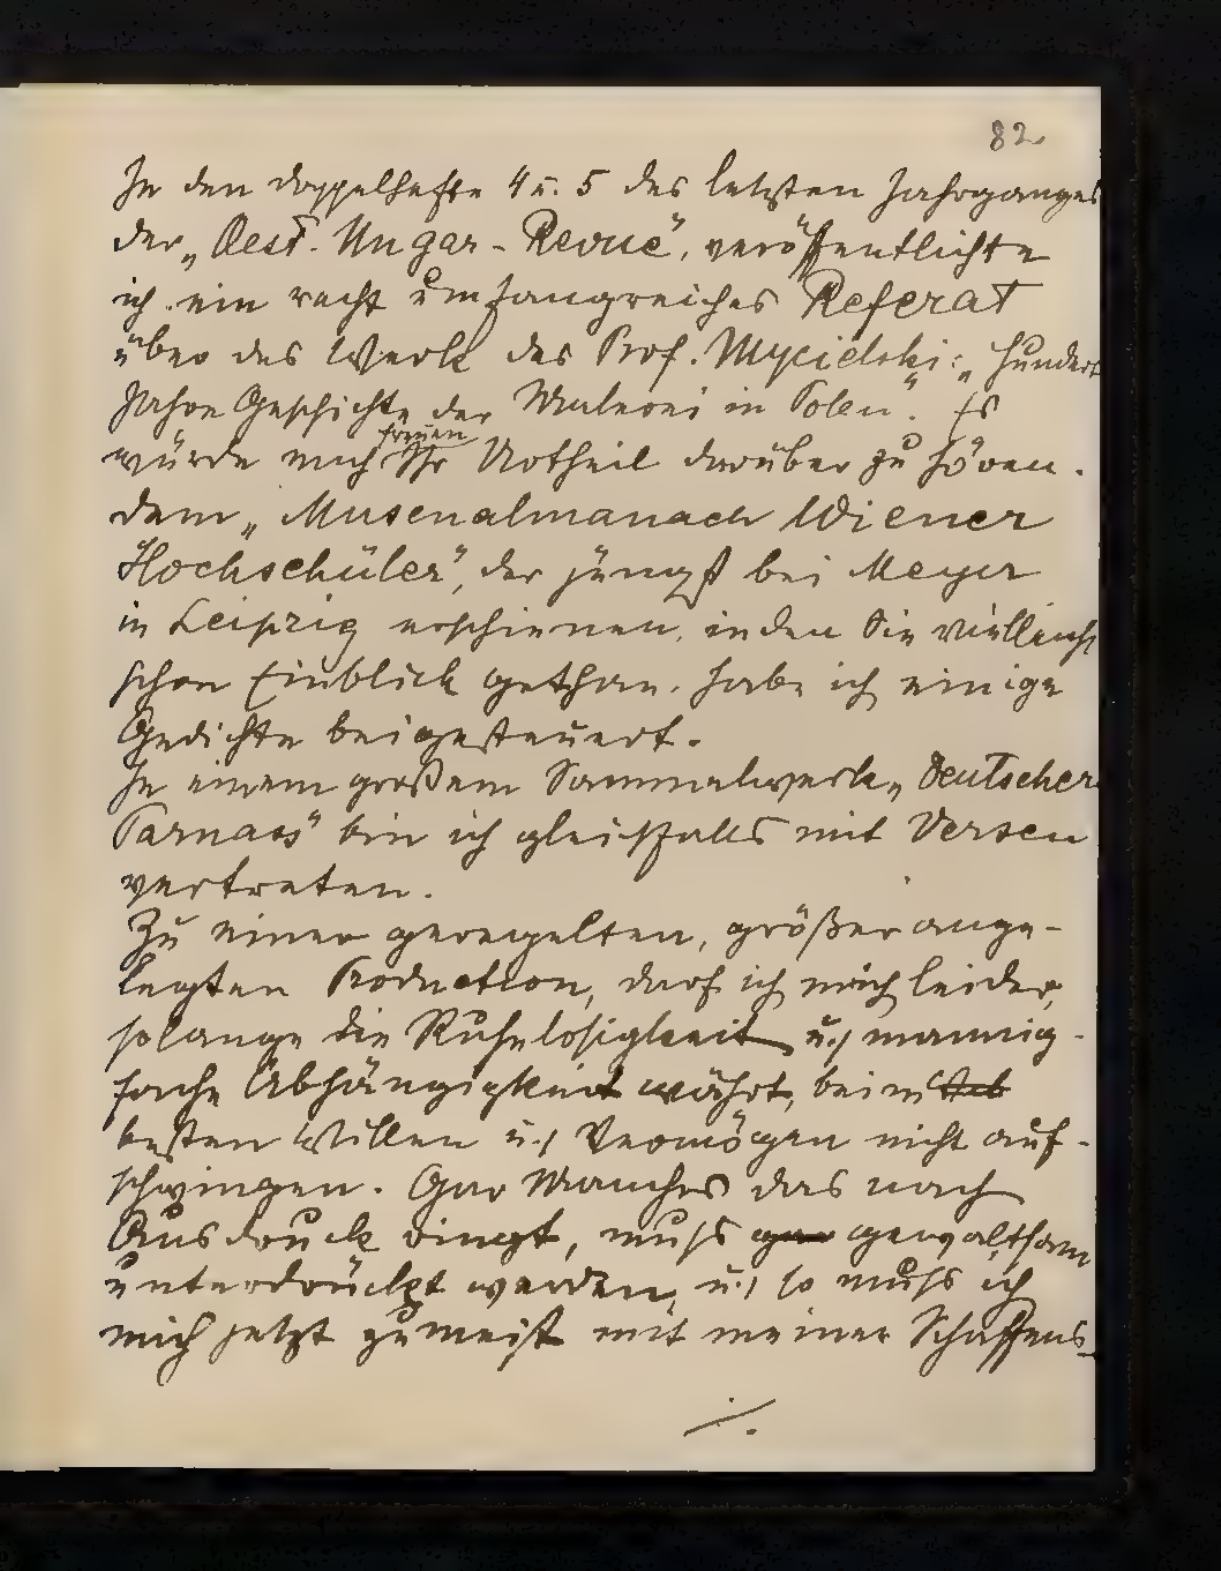 82
In den Doppelhefte 4 u. 5 des letzten Jahrganges
der „Oest. Ungar-Revue", veröffentlichte
ich ein recht umfangreiches Referat
über das Werk des Prof. Mycielski: „Hundert
Jahre Geschichte der Malerei in Polen". Es
freuen
würde mich Ihr Urtheil darüber zu hören.
Dem „Musenalmanach Wiener
Hochschüler", der jüngst bei Meyer
in Leipzig erschienen, in den Sie vielleicht
schon Einblick gethan, habe ich einige
Gedichte beigesteuert.
In einem großem Sammelwerk „Deutscher
Parnass" bin ich gleichfalls mit Versen
vertreten.
Zu einer geregelten, größer ange-
legten Production, darf ich mich leider,
solange die Ruhelosigkeit u. mannig-
fache Abhängigkeit währt, beim
besten Willen u. Vermögen nicht auf-
schwingen. Gar Manches das nach
Ausdruck ringt, muss gar gewaltsam
unterdrückt werden, u. so muss ich
mich jetzt zumeist mit meiner Schaffens-
./.